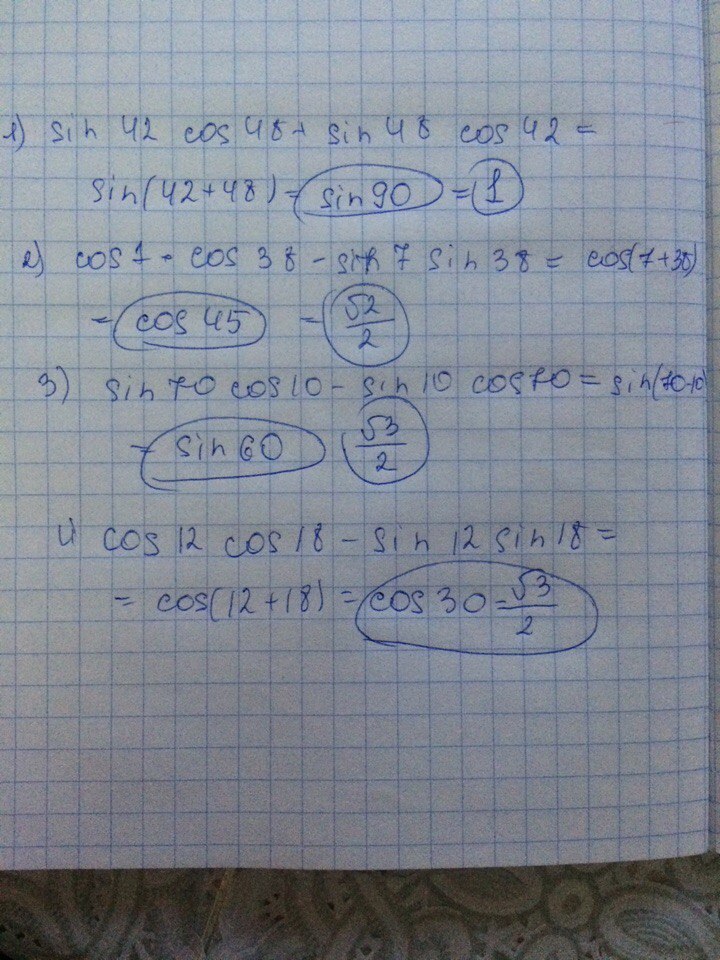 1) sin 42 cos 48 + sin 48 cos 42 =
sin(42+48) = sin 90 = 1
2) cos 7 · cos 38 - sin 7 sin 38 = cos(7+38)
= cos 45 = √2/2
3) sin 70 cos 10 - sin 10 cos 70 = sin(70-10)
= sin 60 √3/2
4) cos 12 cos 18 - sin 12 sin 18 =
= cos(12+18) = cos 30 = √3/2